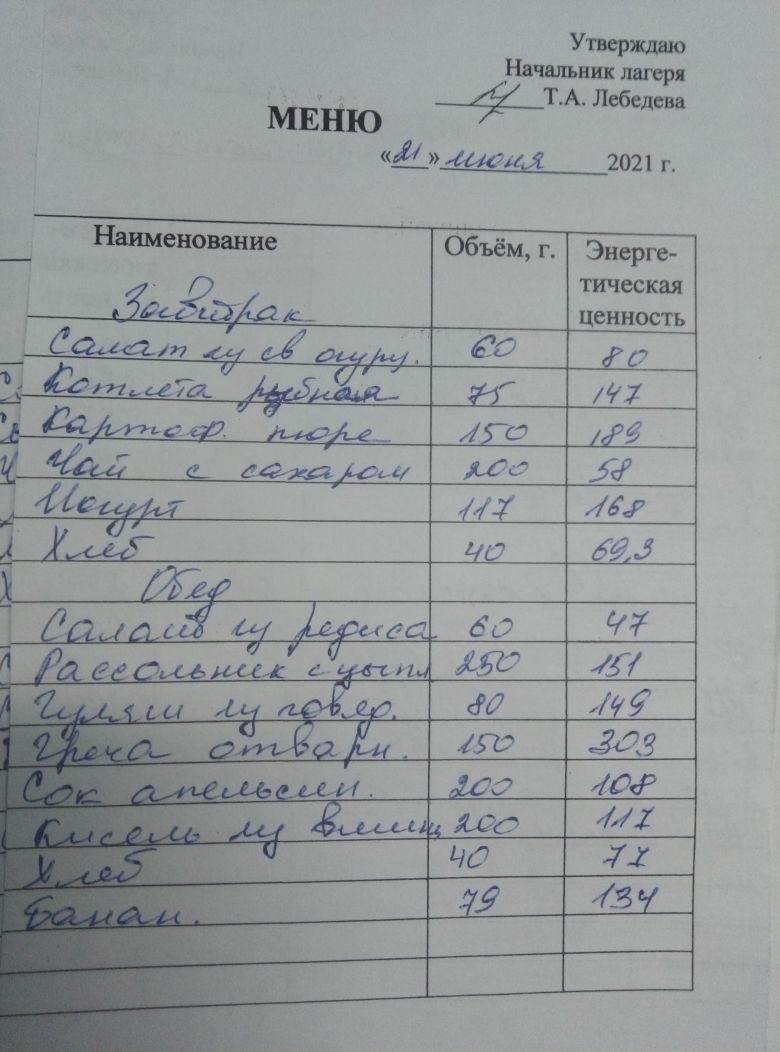 Утверждаю
Начальник лагеря
Т.А. Лебедева
МЕНЮ
«21» июня 2021 г.
Наименование Объём, г. Энерге-
тическая
ценность
Завтрак
Салат из св огур. 60 80
Котлета рыбная 75 147
Картоф. пюре 150 189
Чай с сахаром 200 58
Йогурт 117 168
Хлеб 40 69,3
Обед
Салат из редиса 60 47
Рассольник с цыпл 250 151
Гуляш из говяд. 80 149
Греча отварн. 150 303
Сок апельсин. 200 108
Кисель из вишни 200 117
Хлеб 40 77
Банан. 79 134